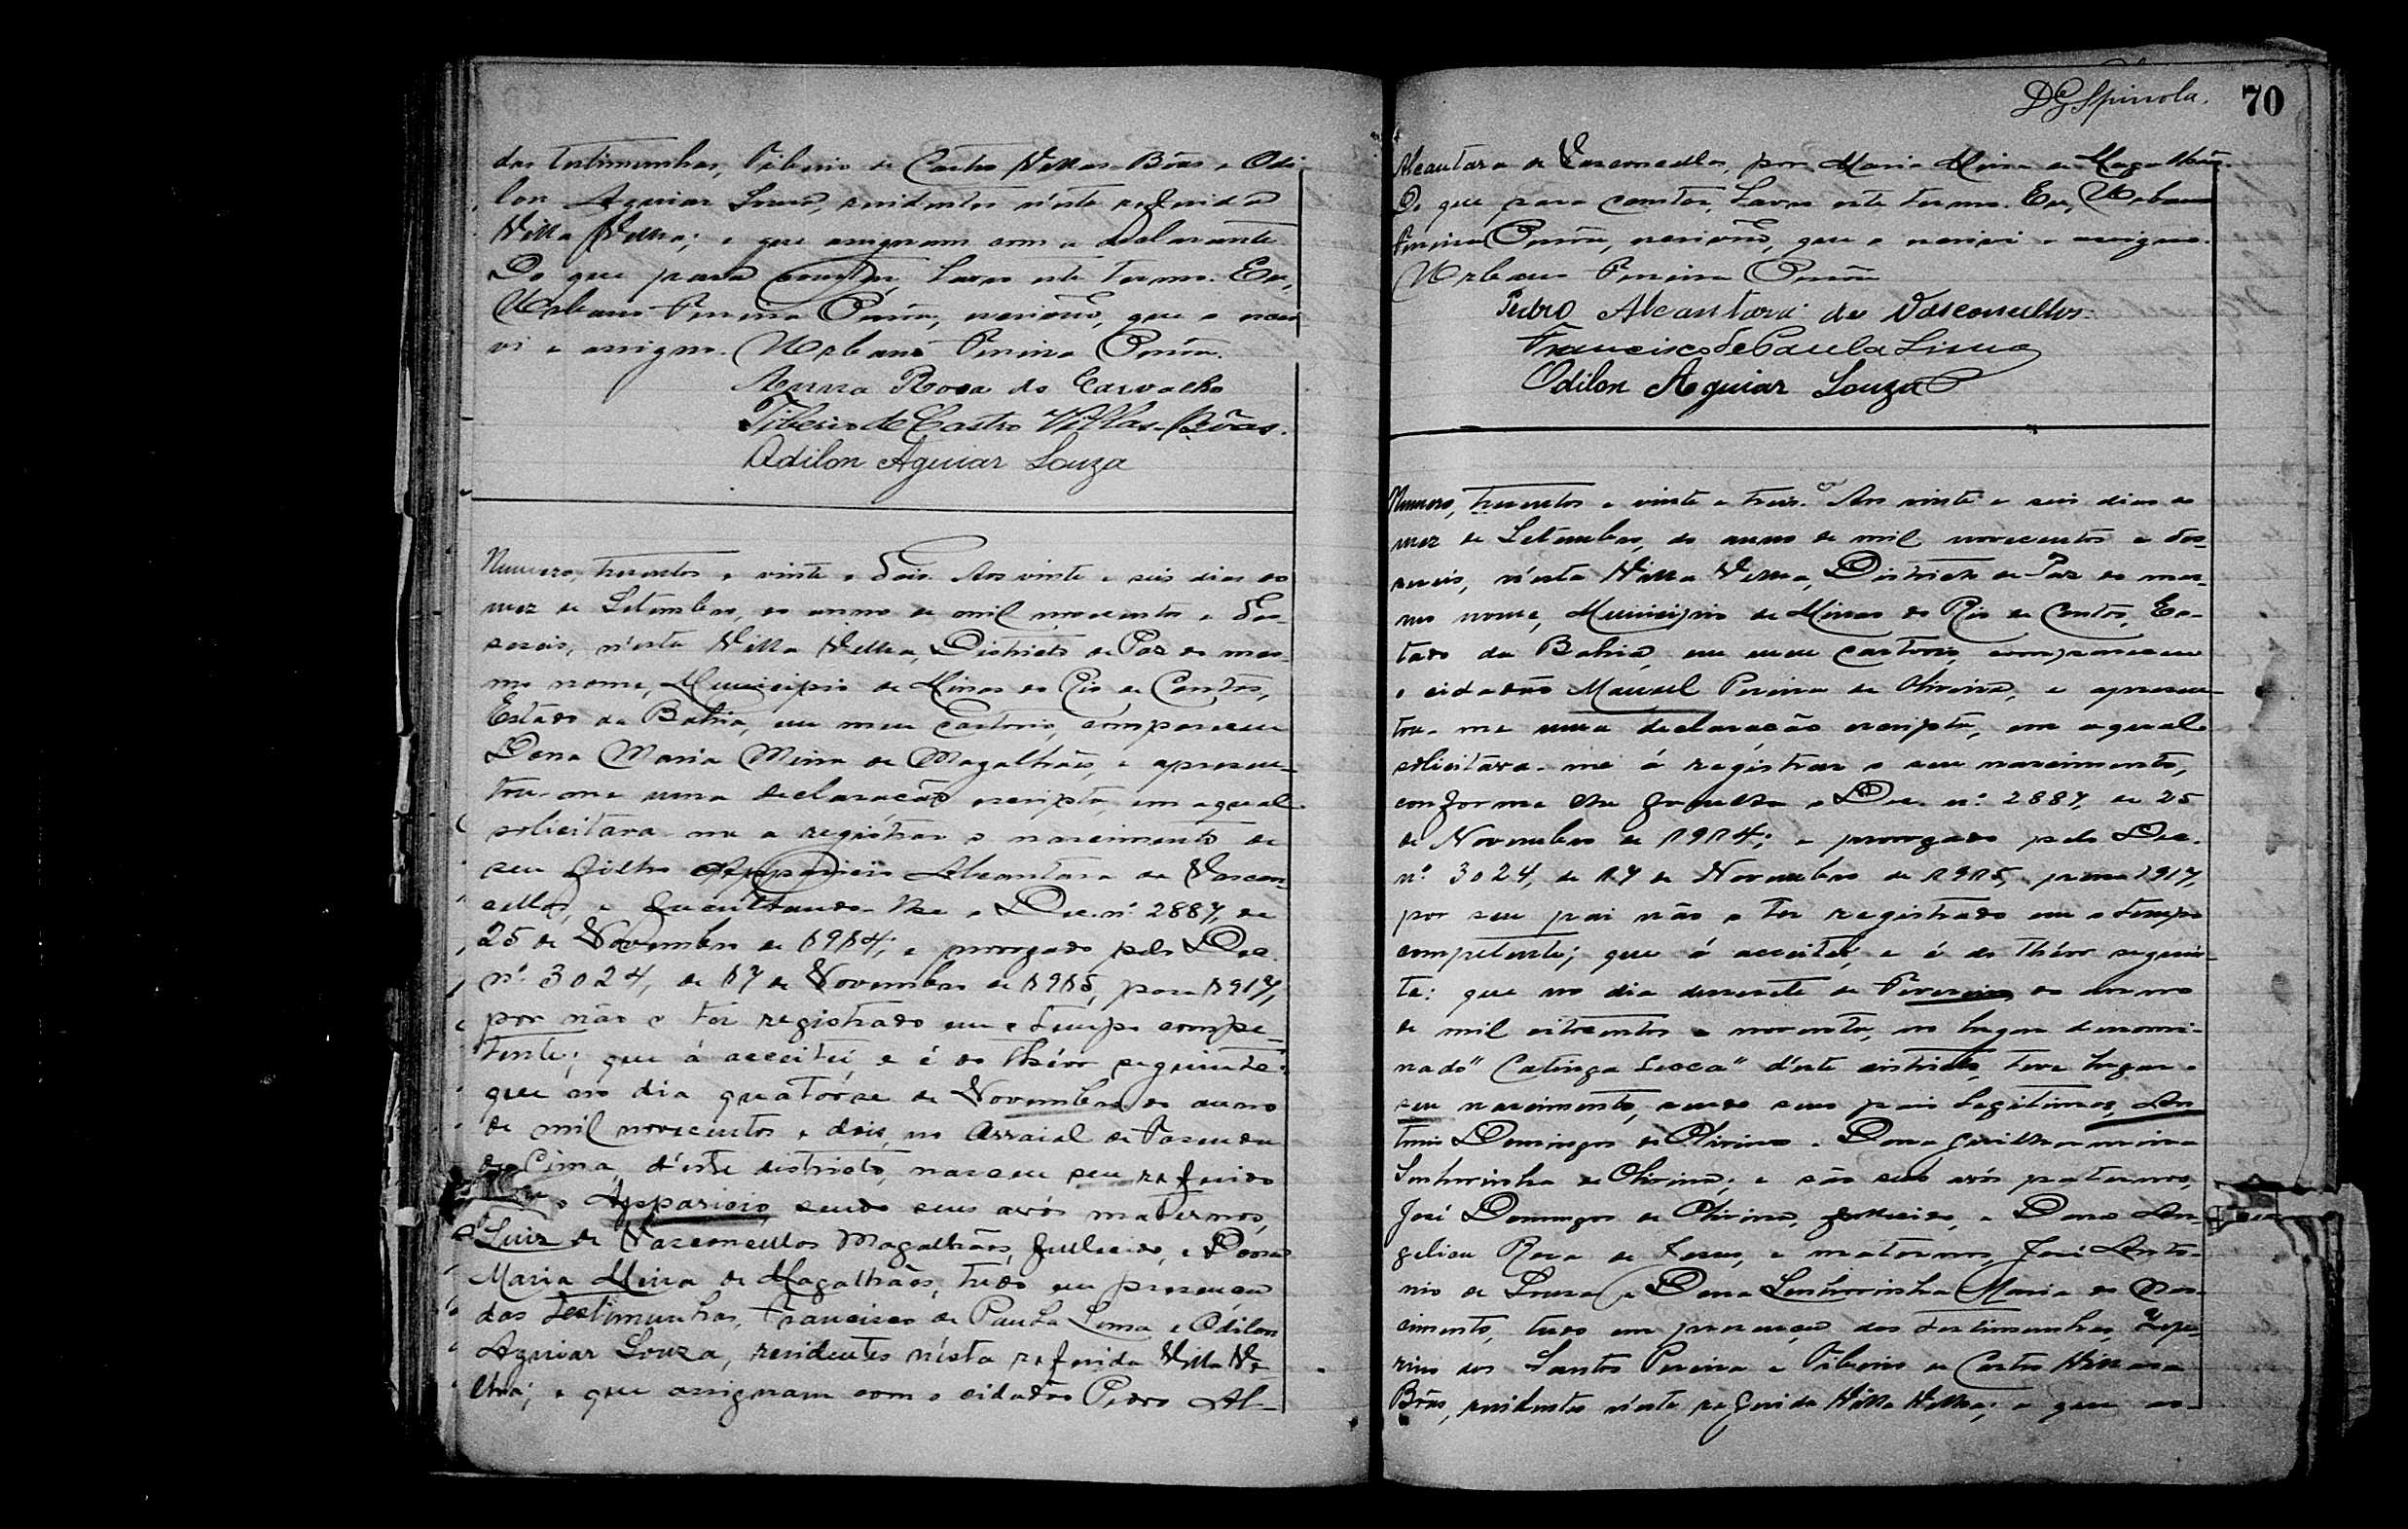 das testimunhas, Tiberio de Castro Villas-Bôas e Odi-
lon Aguiar Souza, residentes n'esta referida
Villa Velha; e que assignam com a declarante
Do que para constar, lavro este termo. Eu,
Urbano Pereira, escrivão, que o escre
vi e assigno. Urbano Pereira
Anna Rosa de Carvalho
Tiberio de Castro Villas-Bôas.
Odilon Aguiar Souza
Numero, trezentos e vinte e dois. Aos vinte e seis dias do
mez de Setembro, do anno de mil novecentos e des-
seseis, n'esta Villa Velha, Districto de Paz do mes-
mo nome, Municipio de Minas do Rio de Contas,
Estado da Bahia, em meu cartorio, compareceu
Dona Maria Meira de Magalhães, e apresen-
tou-me uma declaração escripta, em a qual
solicitava-me a registrar o nascimento de
seu filho Apparicio Alcantara de Vascon-
cellos, e facultando-lhe o Dec. nº 2887, de
25 de Novembro de 1914; e prorogado pelo Dec.
nº 3024, de 17 de Novembro de 1915, para 1917,
por não o ter registrado em o tempo compe-
tente; que á acceitei, e é do theor seguinte:
que no dia quatorze de Novembro do anno
de mil novecentos e dois, no Arraial de Fazenda
de Cima, d'este districto, nasceu seu referido
Apparicio, sendo seus avós maternos,
Luiz de Vasconcellos Magalhães, fallecido, e Dona
Maria Meira de Magalhães, tudo em presença
das testimunhas, Francisco de Paula Lima e Odilon
Aguiar Souza, residentes n'esta referida Villa Ve-
lha; e que assignam com o cidadão Pedro Al-
DG Spinola. 70
Alcantara de Vasconcellos, por Maria Meira de Magalhães.
Do que para constar, lavro este termo. Eu, Urbano
Pereira, escrivão, que o escrevi e assigno.
Urbano Pereira
Pedro Alcantara de Vasconcellos.
Francisco de Paula Lima
Odilon Aguiar Souza
Numero, trezentos e vinte e tres. Aos vinte e seis dias do
mez de Setembro, do anno de mil novecentos e des-
seseis, n'esta Villa Velha, Districto de Paz do mes-
mo nome, Municipio de Minas do Rio de Contas, Es-
tado da Bahia, em meu cartorio, compareceu
o cidadão Manuel Pereira de Oliveira, e apresen-
tou-me uma declaração escripta, em a qual
solicitava-me á registrar o seu nascimento,
conforme lhe faculta o Dec. nº 2887, de 25
de Novembro de 1914; e prorogado pelo Dec.
nº 3024, de 17 de Novembro de 1915, para 1917,
por seu pai não o ter registrado em o tempo
competente; que á acceitei, e é do théor seguin-
te: que no dia desesete de Fevereiro do anno
de mil oitocentos e noventa, no lugar denomi-
nado "Catinga Secca" d'este districto, teve lugar o
seu nascimento, sendo seus pais legitimos, An-
tonio Domingos de Oliveira e Dona Guilhermina
Senhorinha de Oliveira; e são seus avós paternos,
José Domingos de Oliveira, fallecido, e Dona An-
gelica Rosa de Jesus, e maternos, José Anto-
nio de Souza e Dona Senhorinha Maria do Nas-
cimento, tudo em presença das testimunhas, Zefe-
rino dos Santos Pereira e Tiberio de Castro Villas
Bôas, residentes n'esta referida Villa Velha; e que as-